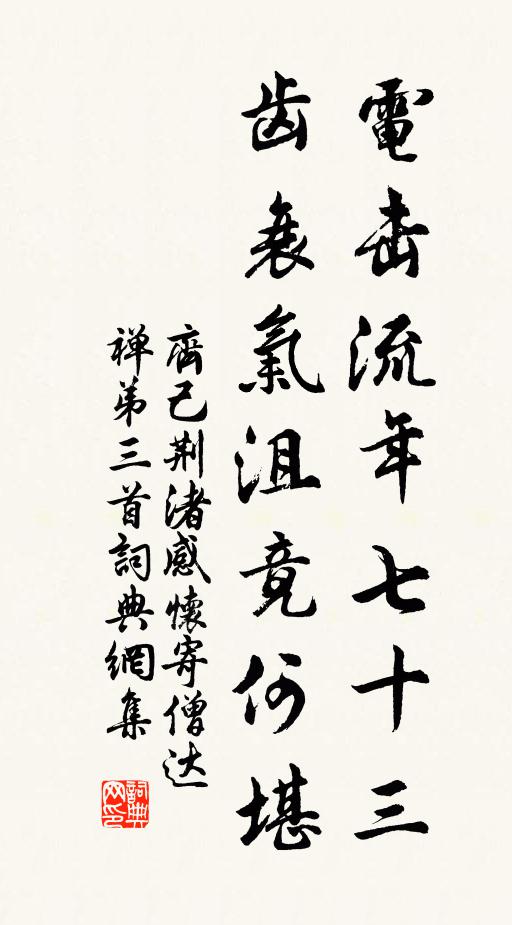 電击流年七十三
齿衰氣沮竟何堪
齊己荆渚感懷寄僧达
禅弟三首詞典網集
詞典网印